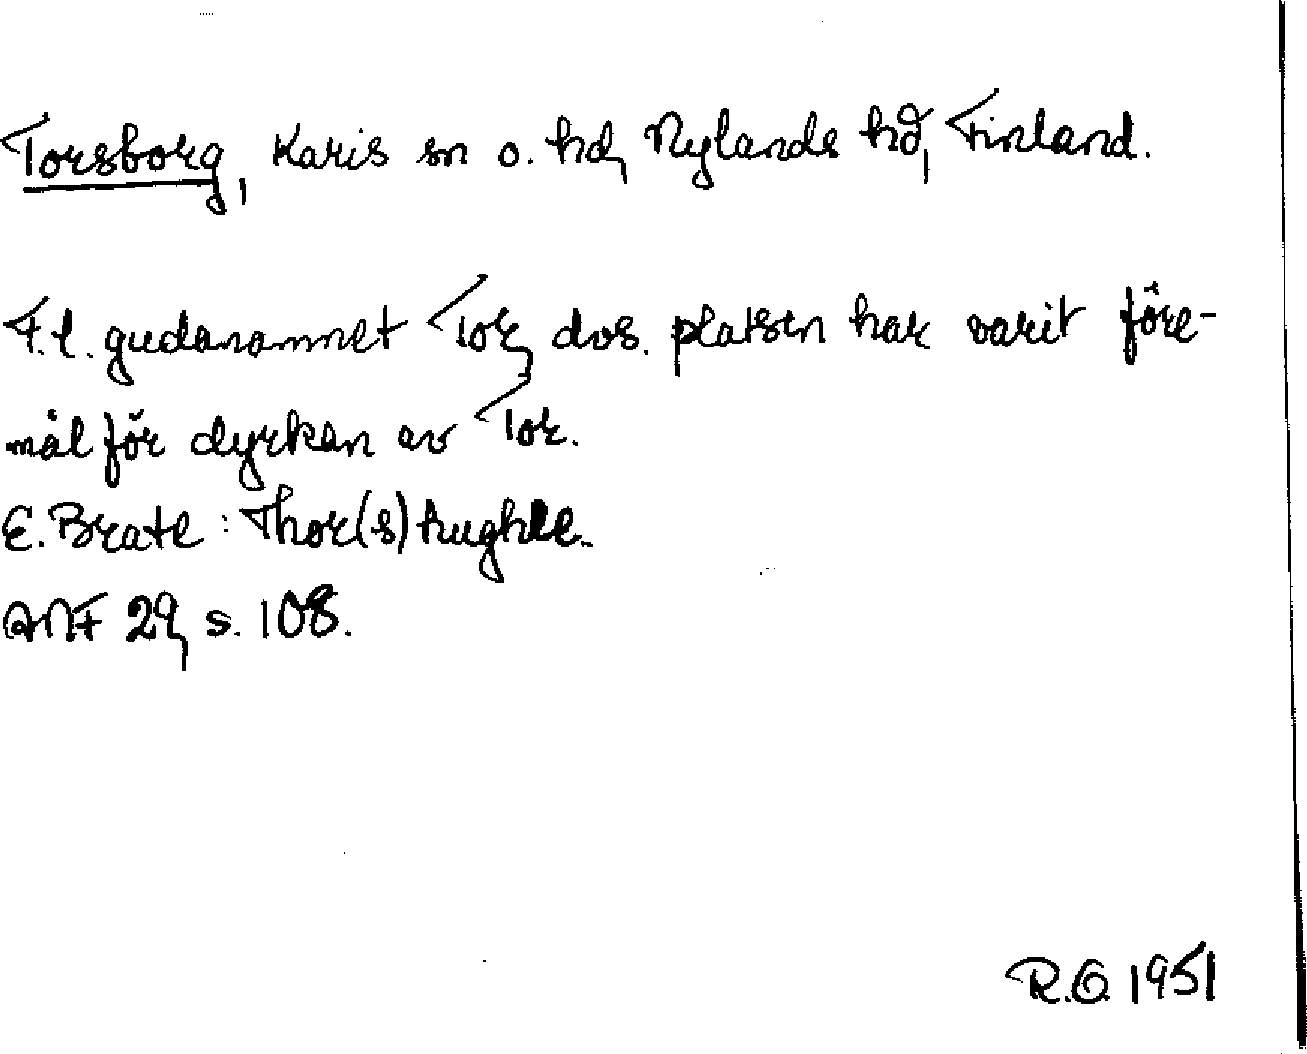 Torsborg, Karis sn o. hd, Nylands hd, Finland.
F.l. gudanamnet Tor, dvs. platsen har varit före-
mål för dyrkan av Tor.
E. Brate: Thor(s)hughle.
ANF 29, s. 108.
R.O. 1951